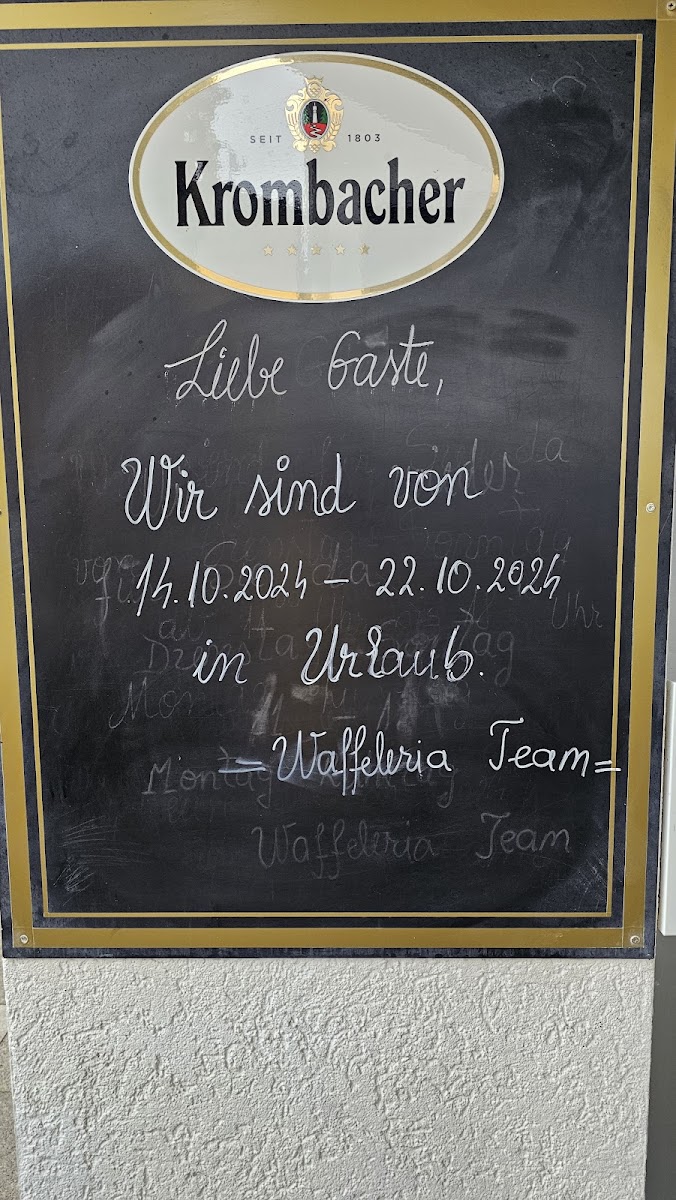 SEIT 1803
Krombacher
Liebe Gäste,
Wir sind von
14.10.2024 – 22.10.2024
in Urlaub.
= Waffeleria Team =
Waffeleria Team